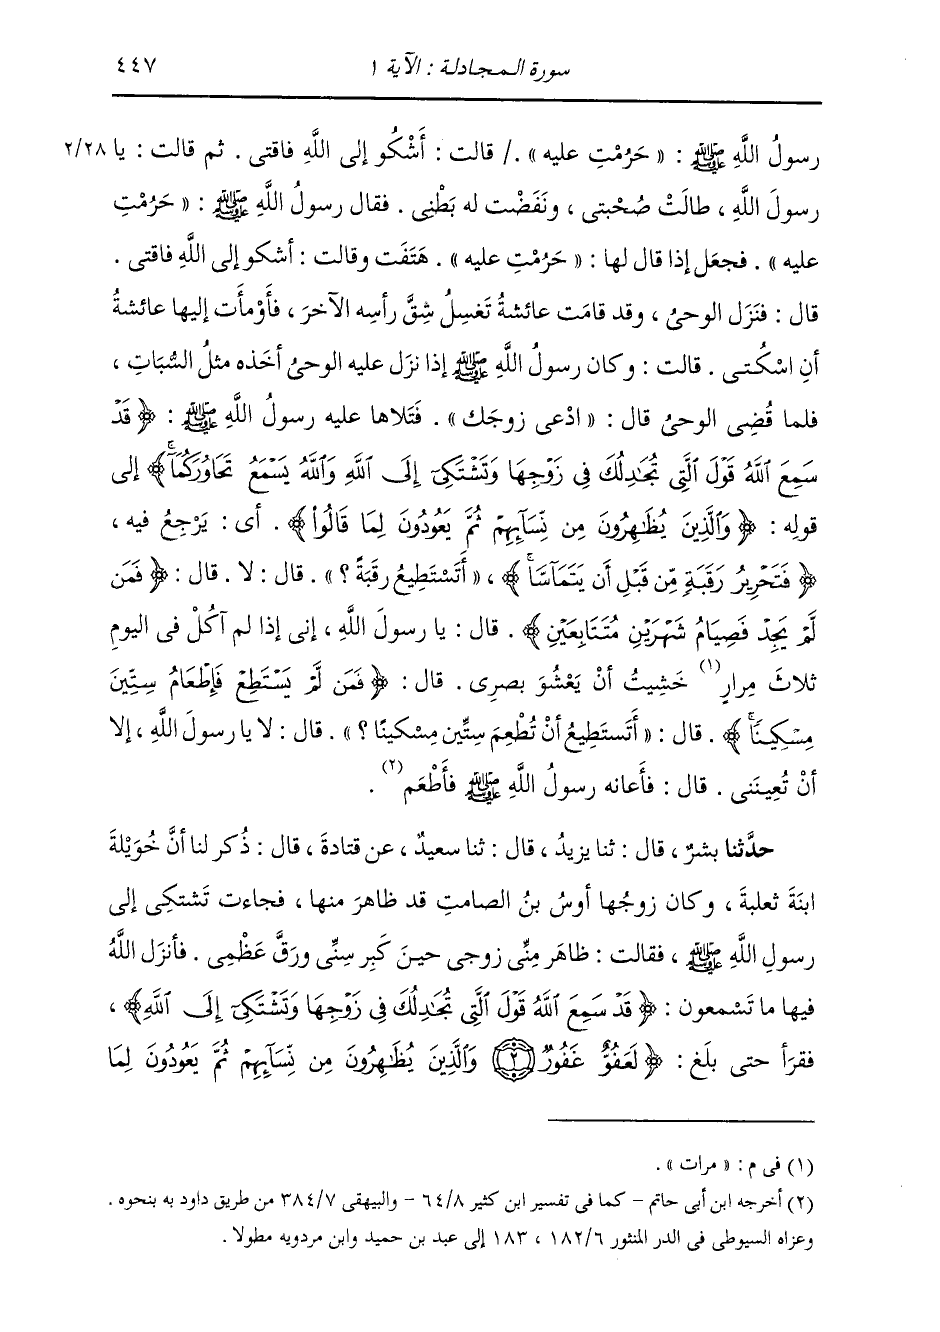 سورة المجادلة : الآية ١ ٤٤٧
رسولُ اللَّهِ ﷺ : « حَرُمْتِ عليه » ./ قالت : أَشْكُو إلى اللَّهِ فاقتى . ثم قالت : يا ٢/٢٨
رسولَ اللَّهِ ، طالَتْ صُحْبتى ، ونَفَضْت له بَطْنِى . فقال رسولُ اللَّهِ ﷺ : « حَرُمْتِ
عليه » . فجعَل إذا قال لها : « حَرُمْتِ عليه » . هَتَفَت وقالت : أشكو إلى اللَّهِ فاقتى .
قال : فنَزَل الوحىُ ، وقد قامَت عائشةُ تَغسِلُ شِقَّ رأسِه الآخرَ ، فأَوْمأَت إليها عائشةُ
أنِ اسْكُتى . قالت : وكان رسولُ اللَّهِ ﷺ إذا نزَل عليه الوحىُ أخَذه مثلُ السُّبَاتِ ،
فلما قُضِى الوحىُ قال : « ادْعى زوجَك » . فتَلاها عليه رسولُ اللَّهِ ﷺ : ﴿ قَدْ
سَمِعَ ٱللَّهُ قَوْلَ ٱلَّتِى تُجَٰدِلُكَ فِى زَوْجِهَا وَتَشْتَكِىٓ إِلَى ٱللَّهِ وَٱللَّهُ يَسْمَعُ تَحَاوُرَكُمَآ ۚ﴾ إلى
قولِه : ﴿ وَٱلَّذِينَ يُظَٰهِرُونَ مِن نِّسَآئِهِمْ ثُمَّ يَعُودُونَ لِمَا قَالُوا۟ ﴾ . أى : يَرْجِعُ فيه ،
﴿ فَتَحْرِيرُ رَقَبَةٍ مِّن قَبْلِ أَن يَتَمَآسَّا ۚ﴾ ، « أَتَسْتَطِيعُ رقبَةً ؟ » . قال : لا . قال : ﴿ فَمَن
لَّمْ يَجِدْ فَصِيَامُ شَهْرَيْنِ مُتَتَابِعَيْنِ ﴾ . قال : يا رسولَ اللَّهِ ، إنى إذا لم آكُلْ فى اليومِ
ثلاثَ مِرارٍ(١) خَشِيتُ أنْ يَعْشُوَ بصرِى . قال : ﴿ فَمَن لَّمْ يَسْتَطِعْ فَإِطْعَامُ سِتِّينَ
مِسْكِينًا ۚ﴾ . قال : « أَتَستَطِيعُ أنْ تُطْعِمَ ستِّين مِسْكينًا ؟ » . قال : لا يا رسولَ اللَّهِ ، إلا
أنْ تُعِينَنى . قال : فأعانه رسولُ اللَّهِ ﷺ فأَطْعَم(٢) .
حدَّثنا بشرٌ ، قال : ثنا يزيدُ ، قال : ثنا سعيدٌ ، عن قتادةَ ، قال : ذُكر لنا أنَّ خُوَيْلةَ
ابنَةَ ثعلبةَ ، وكان زوجُها أوسُ بنُ الصامتِ قد ظاهرَ منها ، فجاءت تَشتكِى إلى
رسولِ اللَّهِ ﷺ ، فقالت : ظاهَر مِنِّى زوجى حينَ كَبِر سِنِّى ورَقَّ عَظْمِى . فأنزَل اللَّهُ
فيها ما تَسْمعون : ﴿ قَدْ سَمِعَ ٱللَّهُ قَوْلَ ٱلَّتِى تُجَٰدِلُكَ فِى زَوْجِهَا وَتَشْتَكِىٓ إِلَى ٱللَّهِ ﴾ ،
فقرَأ حتى بلَغ : ﴿ لَعَفُوٌّ غَفُورٌ ۝٢ وَٱلَّذِينَ يُظَٰهِرُونَ مِن نِّسَآئِهِمْ ثُمَّ يَعُودُونَ لِمَا
(١) فى م : « مرات » .
(٢) أخرجه ابن أبى حاتم - كما فى تفسير ابن كثير ٦٤/٨ - والبيهقى ٣٨٤/٧ من طريق داود به بنحوه .
وعزاه السيوطى فى الدر المنثور ١٨٢/٦ ، ١٨٣ إلى عبد بن حميد وابن مردويه مطولا .